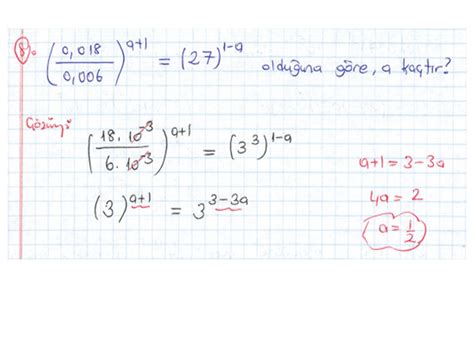 8. (0,018 / 0,006)^(a+1) = (27)^(1-a) olduğuna göre, a kaçtır?
Çözüm:
(18.10^-3 / 6.10^-3)^(a+1) = (3^3)^(1-a)
a+1 = 3-3a
(3)^(a+1) = 3^(3-3a)
4a = 2
a = 1/2